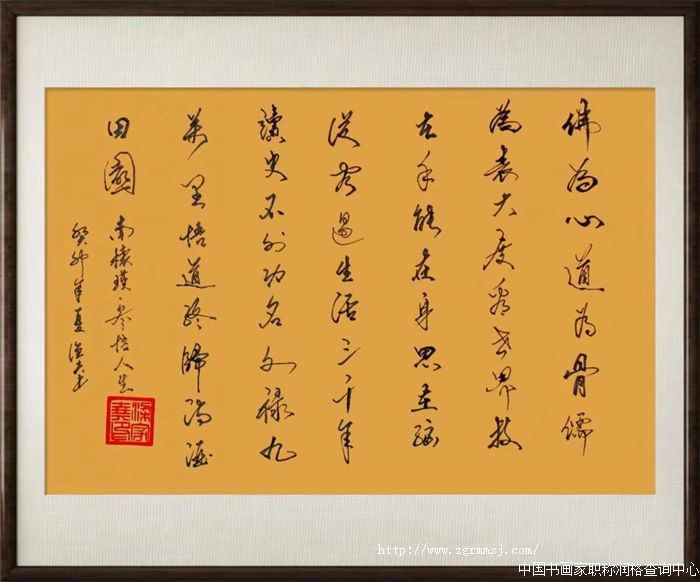 佛為心道為骨儒
為表大度看世界技
在手能在身思在腦
從容過生活三千年
讀史不外功名利祿九
萬里悟道終歸詩酒
田園
南懷瑾·參悟人生
癸卯年夏
http://www.zgrmmsj.com
中国书画家职称润格查询中心